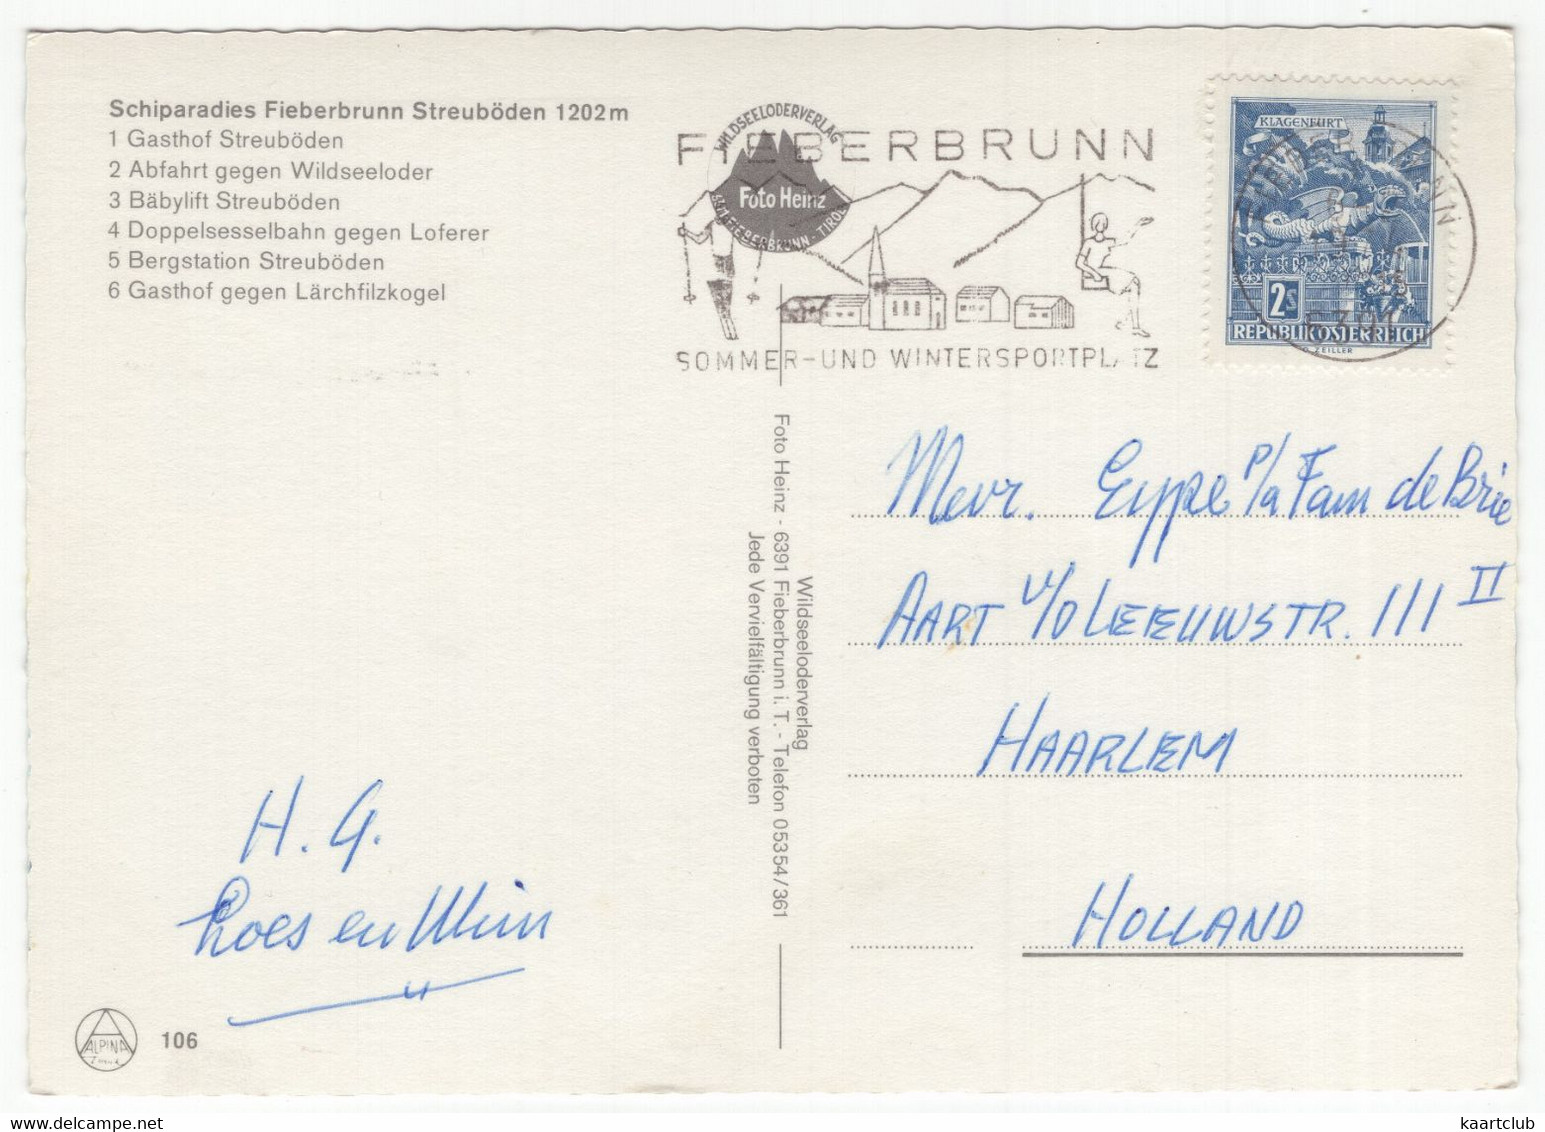 Schiparadies Fieberbrunn Streuböden 1202m
1 Gasthof Streuböden
2 Abfahrt gegen Wildseeloder
3 Bäbylift Streuböden
4 Doppelsesselbahn gegen Loferer
5 Bergstation Streuböden
6 Gasthof gegen Lärchfilzkogel
WILDSEELODERVERLAG
Foto Heinz
FIEBERBRUNN - TIROL
FIEBERBRUNN
SOMMER-UND WINTERSPORTPLATZ
KLAGENFURT
2s
REPUBLIK ÖSTERREICH
ZEILLER
FIEBERBRUNN
6391
Mevr. Eype p/a Fam de Brie
AART V/D LEEUWSTR. 111 II
HAARLEM
HOLLAND
Wildseeloderverlag
Foto Heinz - 6391 Fieberbrunn i. T. - Telefon 05354/361
Jede Vervielfältigung verboten
H. G.
Loes en Wim
ALPINA
106
kaartclub